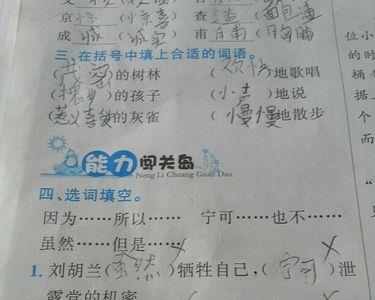 京(惊)(惊喜) 查(渣)(面包渣)
成(诚)(诚实) 甫(
三、在括号中填上合适的词语。
(茂密)的树林 (欢快)地歌唱
)的孩子 (小声)地说
(惹人喜爱)的灰雀 (慢慢)地散步
能力闯关岛
Neng Li Chuang Guan Dao
四、选词填空。
因为……所以…… 宁可……也不……
虽然……但是……
1. 刘胡兰(虽然)牺牲自己,(宁可)泄
露党的机密
位小
的时
桶
个